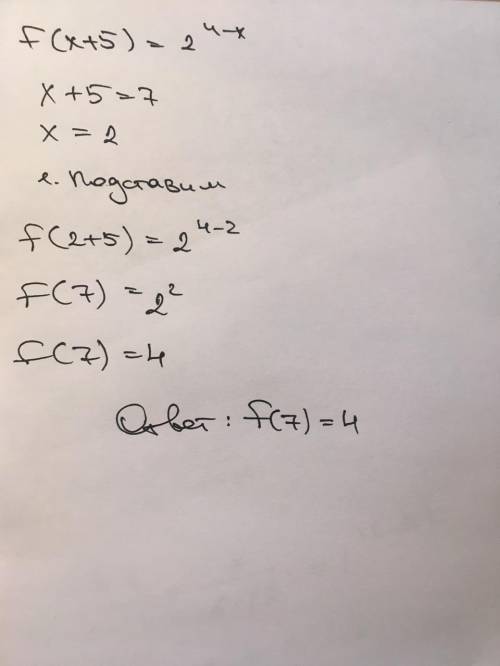 f(x+5) = 2^{4-x}
x+5=7
x = 2
Подставим
f(2+5) = 2^{4-2}
f(7) = 2^2
f(7) = 4
Ответ: f(7) = 4